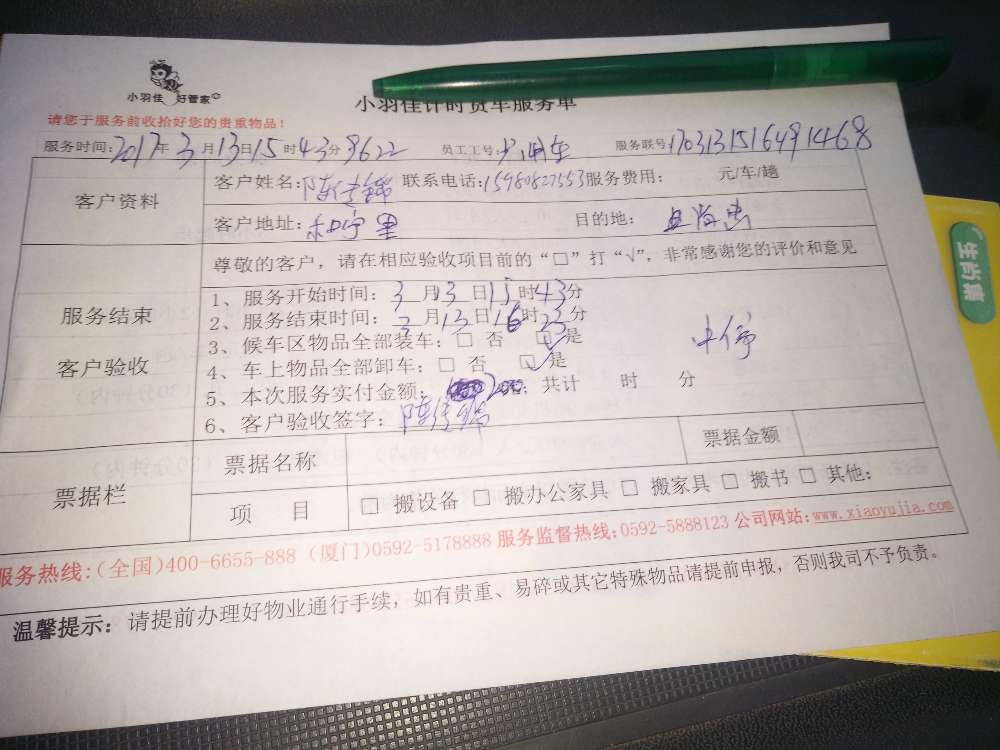 小羽佳 好管家
小羽佳计时货车服务单
请您于服务前收拾好您的贵重物品！
服务时间：2017年3月13日15时43分8622 员工工号： 服务联号：1703131516491468
客户资料
客户姓名： 联系电话：15980827553 服务费用： 元/车/趟
客户地址：和宁里 目的地：
尊敬的客户，请在相应验收项目前的“□”打“√”，非常感谢您的评价和意见
服务结束
客户验收
1、服务开始时间：3月13日15时43分
2、服务结束时间：3月13日16时23分
3、候车区物品全部装车：□ 否 ☑ 是
4、车上物品全部卸车：□ 否 ☑ 是
5、本次服务实付金额：200 共计 时 分
6、客户验收签字：
票据栏
票据名称 票据金额
项 目 □ 搬设备 □ 搬办公家具 □ 搬家具 □ 搬书 □ 其他：
服务热线：(全国)400-6655-888 (厦门)0592-5178888 服务监督热线：0592-5888123 公司网站：www.xiaoyujia.com
温馨提示：请提前办理好物业通行手续，如有贵重、易碎或其它特殊物品请提前申报，否则我司不予负责。
生肖集